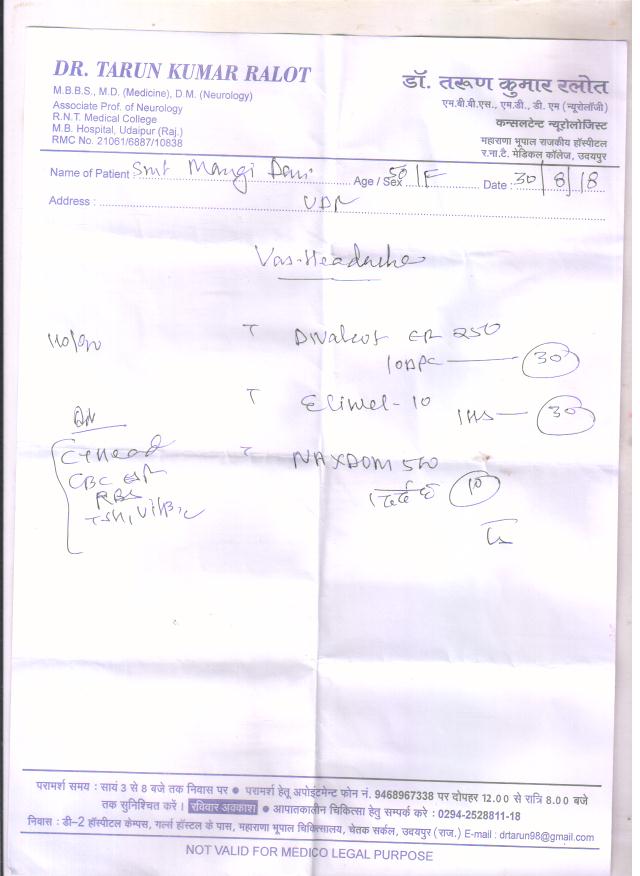 DR. TARUN KUMAR RALOT
M.B.B.S., M.D. (Medicine), D.M. (Neurology)
Associate Prof. of Neurology
R.N.T. Medical College
M.B. Hospital, Udaipur (Raj.)
RMC No. 21061/6887/10838
डॉ. तरूण कुमार रलोत
एम.बी.बी.एस., एम.डी., डी. एम (न्यूरोलॉजी)
कन्सलटेन्ट न्यूरोलोजिस्ट
महाराणा भूपाल राजकीय हॉस्पीटल
र.ना.टै. मेडिकल कॉलेज, उदयपुर
Name of Patient : Smt Mangi Devi Age / Sex 50/F Date : 30/8/18
Address : UDR
Vas. Headache
110/90
T Divalcot ER 250
30
T Elimel-10 1HS 30
CT Head
T NAXDOM 500
CBC ESR
RBS
1 दर्द 10
TSH, Vit B12
परामर्श समय : सायं 3 से 8 बजे तक निवास पर ● परामर्श हेतू अपोइंटमेन्ट फोन नं. 9468967338 पर दोपहर 12.00 से रात्रि 8.00 बजे
तक सुनिश्चित करें । रविवार अवकाश ● आपातकालीन चिकित्सा हेतु सम्पर्क करे : 0294-2528811-18
निवास : डी-2 हॉस्पीटल केम्पस, गर्ल्स हॉस्टल के पास, महाराणा भूपाल चिकित्सालय, चेतक सर्कल, उदयपुर (राज.) E-mail : drtarun98@gmail.com
NOT VALID FOR MEDICO LEGAL PURPOSE